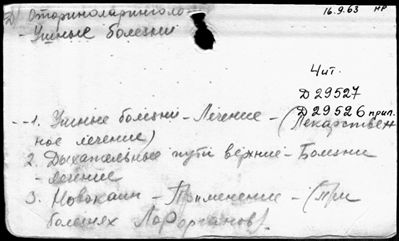 Оториноларинголо-
16.9.63 НР
- Ушные болезни
Чит.
Д 29527
Д 29526 прил.
1. Ушные болезни - Лечение - (Лекарствен
ное лечение)
2. Дыхательные пути верхние - Болезни
- Лечение
3. Новокаин - Применение - (При
болезнях Лорорганов).